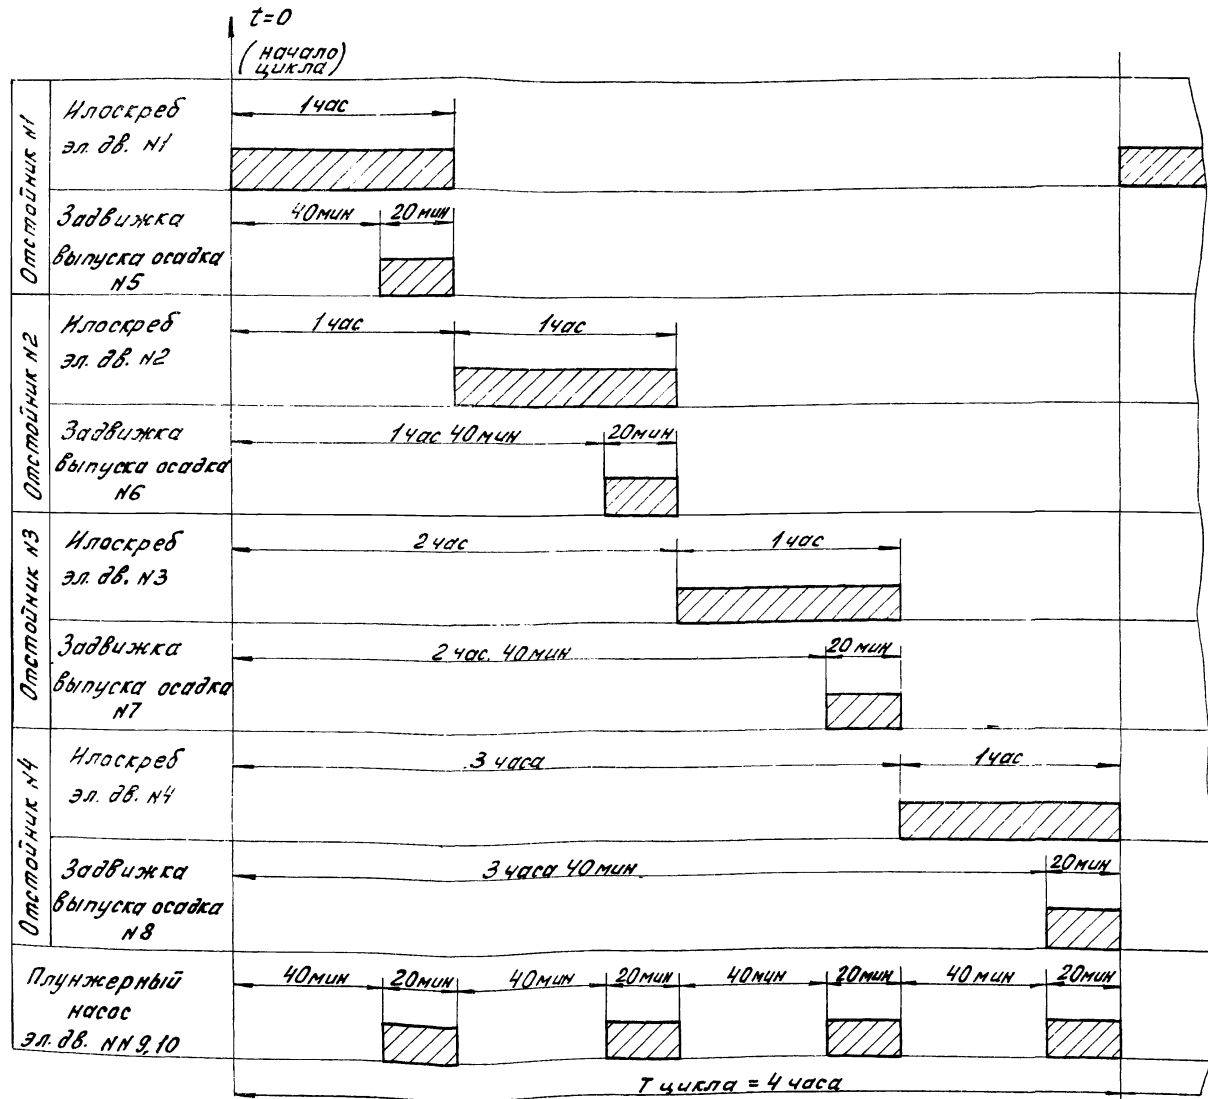 t=0
(начало
цикла)
Отстойник N1
Илоскреб
эл. дв. N1
1 час
Задвижка
выпуска осадка
N5
40 мин
20 мин
Отстойник N2
Илоскреб
эл. дв. N2
1 час
1 час
Задвижка
выпуска осадка
N6
1 час 40 мин
20 мин
Отстойник N3
Илоскреб
эл. дв. N3
2 час
1 час
Задвижка
выпуска осадка
N7
2 час. 40 мин
20 мин
Отстойник N4
Илоскреб
эл. дв. N4
3 часа
1 час
Задвижка
выпуска осадка
N8
3 часа 40 мин
20 мин
Плунжерный
насос
эл. дв. NN 9,10
40 мин
20 мин
40 мин
20 мин
40 мин
20 мин
40 мин
20 мин
T цикла = 4 часа